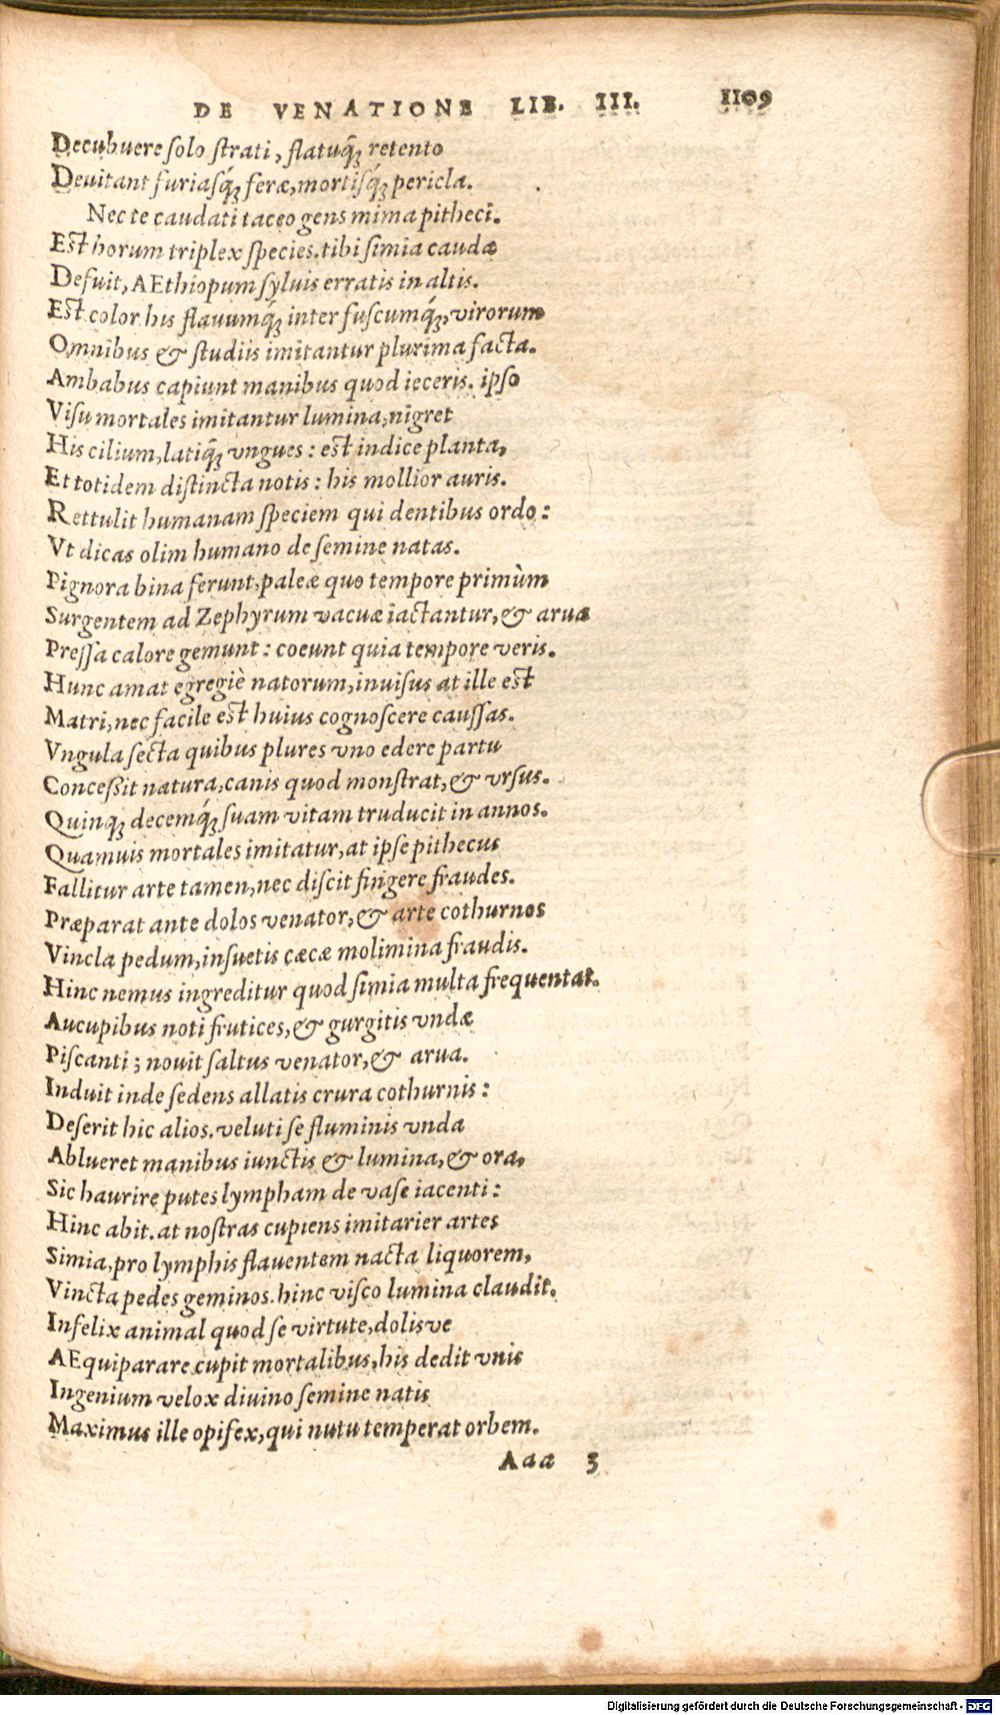 DE VENATIONE LIB. III. 1109
Decubuere ſolo ſtrati, flatuq́; retento
Deuitant furiaſq́; feræ, mortiſq́; pericla.
Nec te caudati taceo gens mima pitheci.
Est horum triplex species. tibi ſimia caudæ
Defuit, AEthiopum ſyluis erratis in altis.
Est color his flauumq́; inter fuſcumq́;, virorum
Omnibus & ſtudiis imitantur plurima facta.
Ambabus capiunt manibus quod ieceris. ipſo
Viſu mortales imitantur lumina, nigret
His cilium, latiq́; vngues: est indice planta,
Et totidem diſtincta notis: his mollior auris.
Rettulit humanam ſpeciem qui dentibus ordo:
Vt dicas olim humano de ſemine natas.
Pignora bina ferunt, paleæ quo tempore primùm
Surgentem ad Zephyrum vacuæ iactantur, & arua
Preſſa calore gemunt: coeunt quia tempore veris.
Hunc amat egregiè natorum, inuiſus at ille est
Matri, nec facile est huius cognoſcere cauſſas.
Vngula ſecta quibus plures vno edere partu
Conceßit natura, canis quod monſtrat, & vrſus.
Quinq; decemq́; ſuam vitam truducit in annos.
Quamuis mortales imitatur, at ipſe pithecus
Fallitur arte tamen, nec diſcit fingere fraudes.
Præparat ante dolos venator, & arte cothurnos
Vincla pedum, inſuetis cæcæ molimina fraudis.
Hinc nemus ingreditur quod ſimia multa frequentat.
Aucupibus noti frutices, & gurgitis vndæ
Piſcanti; nouit ſaltus venator, & arua.
Induit inde ſedens allatis crura cothurnis:
Deſerit hic alios. veluti ſe fluminis vnda
Ablueret manibus iunctis & lumina, & ora,
Sic haurire putes lympham de vaſe iacenti:
Hinc abit. at noſtras cupiens imitarier artes
Simia, pro lymphis flauentem nacta liquorem,
Vincta pedes geminos. hinc viſco lumina claudit.
Infelix animal quod ſe virtute, dolisve
AEquiparare cupit mortalibus, his dedit vnis
Ingenium velox diuino ſemine natis
Maximus ille opifex, qui nutu temperat orbem.
Aaa 3
Digitalisierung gefördert durch die Deutsche Forschungsgemeinschaft - DFG